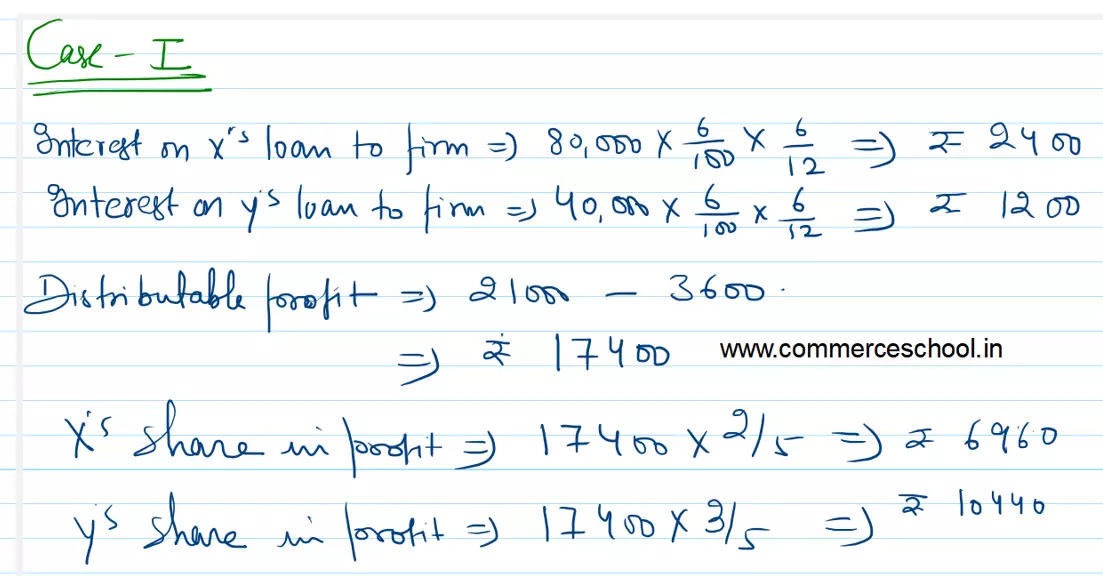 Case - I
Interest on X's loan to firm ⇒ 80,000 × 6/100 × 6/12 ⇒ ₹ 2400
Interest on y's loan to firm ⇒ 40,000 × 6/100 × 6/12 ⇒ ₹ 1200
Distributable profit ⇒ 21000 - 3600.
⇒ ₹ 17400
www.commerceschool.in
X's share in profit ⇒ 17400 × 2/5 ⇒ ₹ 6960
y's share in profit ⇒ 17400 × 3/5 ⇒ ₹ 10440